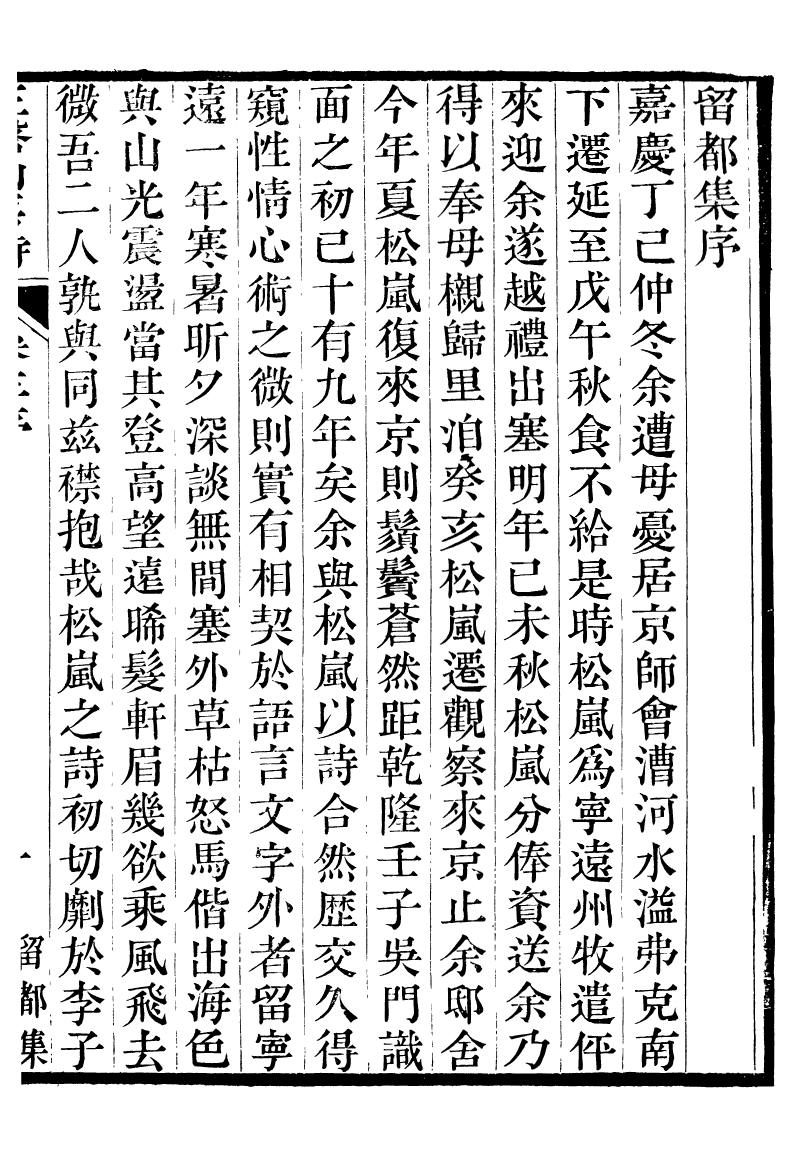 留都集序
嘉慶丁巳仲冬余遭母憂居京師會漕河水溢弗克南
下遷延至戊午秋食不給是時松嵐爲寧遠州牧遣伻
來迎余遂越禮出塞明年己未秋松嵐分俸資送余乃
得以奉母櫬歸里洎癸亥松嵐遷觀察來京止余邸舍
今年夏松嵐復來京則鬚鬢蒼然距乾隆壬子吳門識
面之初已十有九年矣余與松嵐以詩合然歷交久得
窺性情心術之微則實有相契於語言文字外者留寧
遠一年寒暑昕夕深談無間塞外草枯怒馬偕出海色
與山光震盪當其登高望遠晞髮軒眉幾欲乘風飛去
微吾二人孰與同茲襟抱哉松嵐之詩初切劘於李子
一
留都集